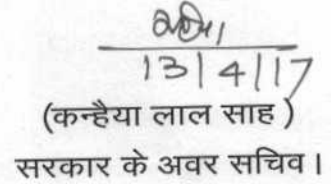 13/4/17
(कन्हैया लाल साह )
सरकार के अवर सचिव।